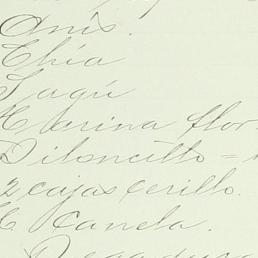 Anis.
Chía
Sagú
Harina flor.
Piloncillo =
2 cajas cerillo.
K Canela.